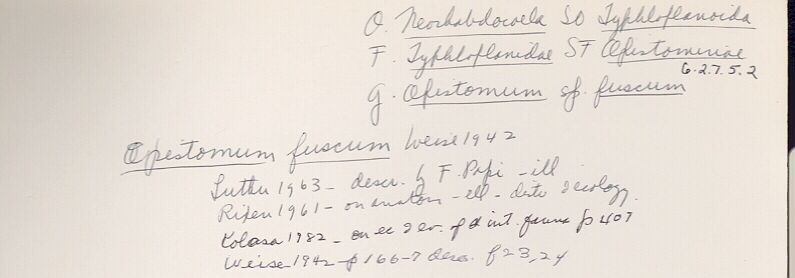 O. Neorhabdocoela SO Typhloplanoida
F. Typhloplanidae SF Opistominae
6.2.7.5.2
G. Opistomum sp. fuscum
Opistomum fuscum Weise 1942
Luther 1963 - descr. by F. Papi - ill
Rixen 1961 - on anatom - ill - dist & ecology.
Kolasa 1982 - on ec & ev. of d int. fauna p 407
Weise 1942 - p 166-7 desc. f 23, 24